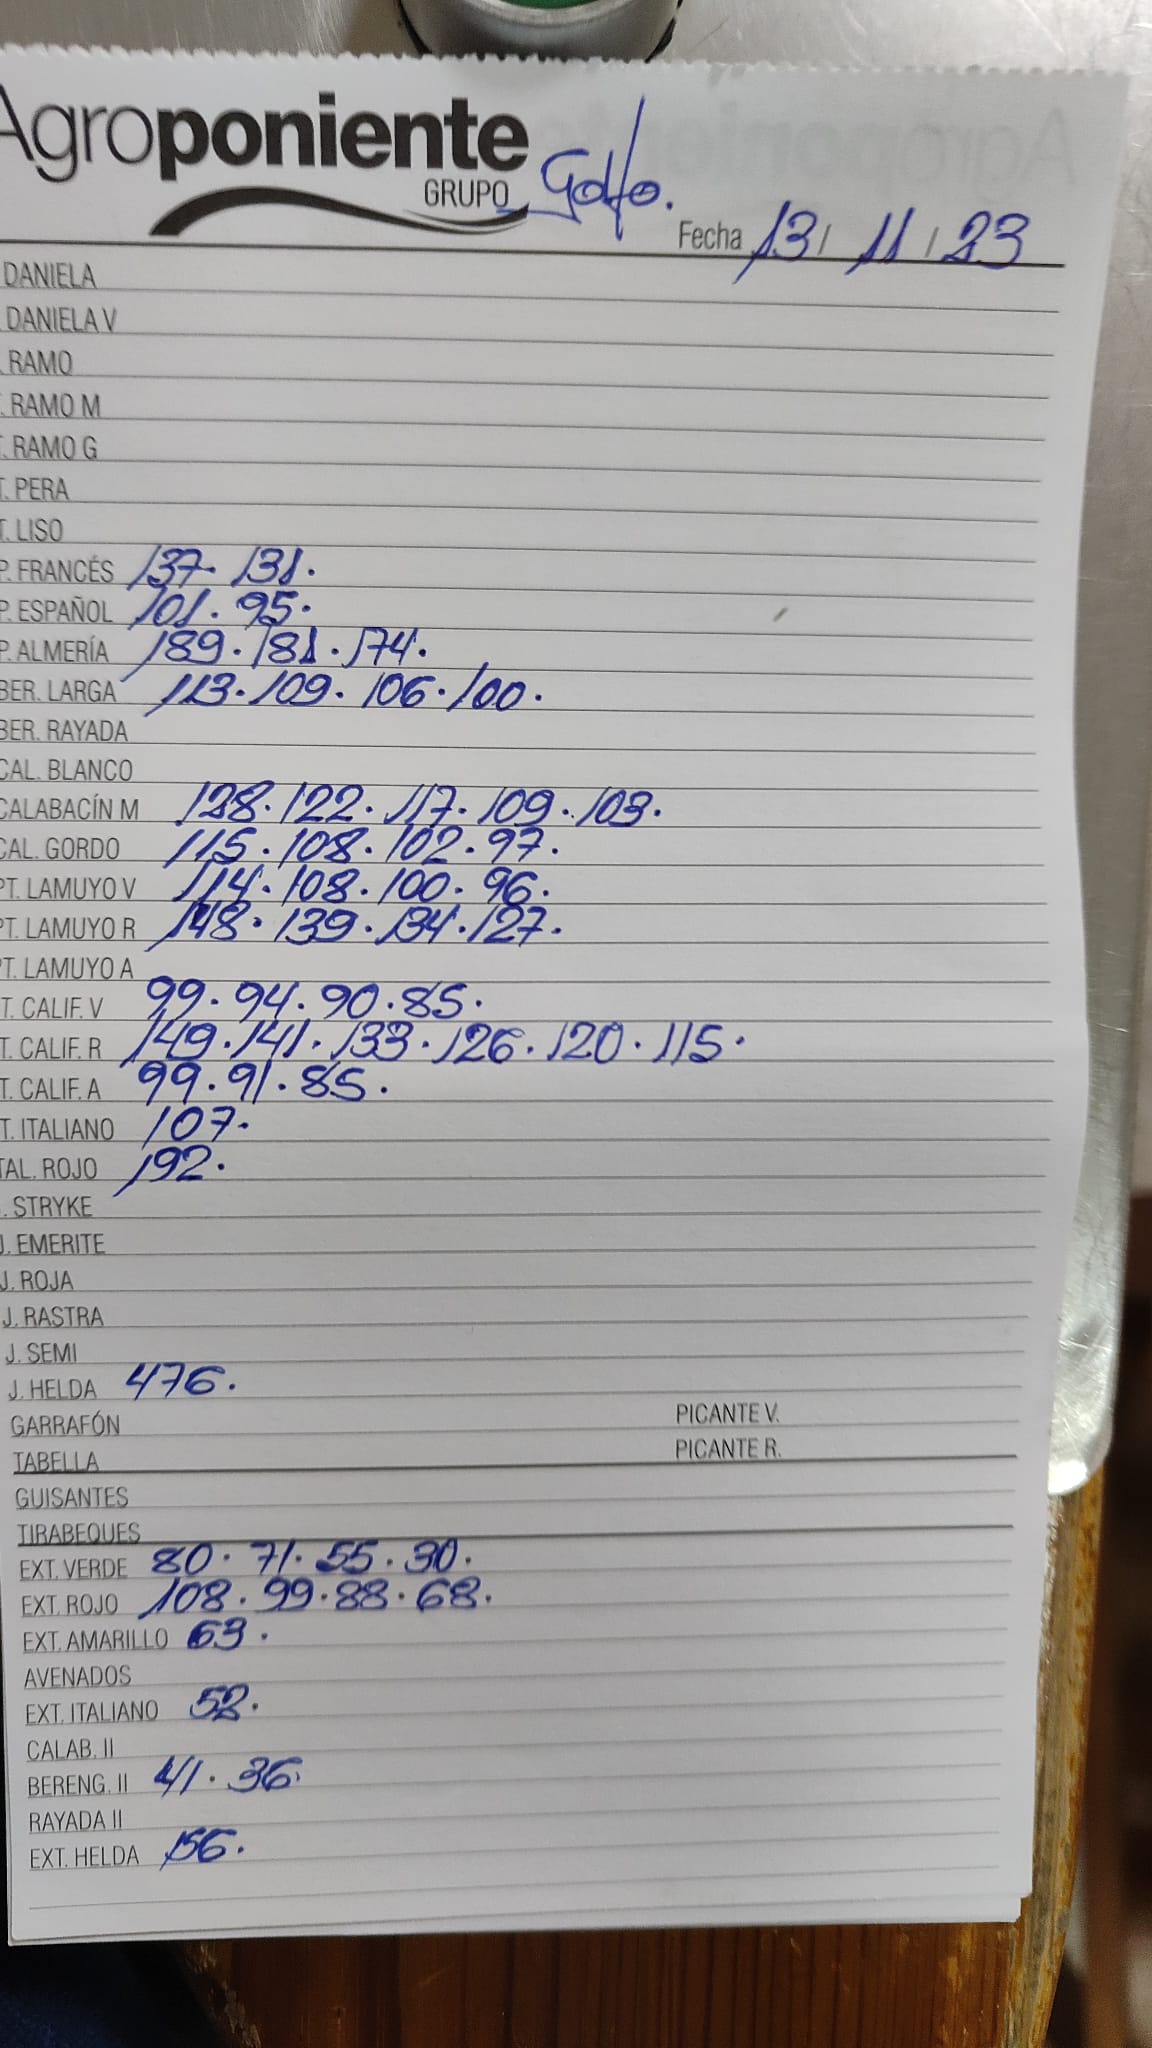 Agroponiente
GRUPO Golfo.
Fecha 13 / 11 / 23
DANIELA
DANIELA V
. RAMO
. RAMO M
T. RAMO G
T. PERA
T. LISO
P. FRANCÉS 137. 131.
P. ESPAÑOL 101. 95.
P. ALMERÍA 189. 181. 174.
BER. LARGA 113. 109. 106. 100.
BER. RAYADA
CAL. BLANCO
CALABACÍN M 128. 122. 117. 109. 103.
CAL. GORDO 115. 108. 102. 97.
PT. LAMUYO V 114. 108. 100. 96.
PT. LAMUYO R 148. 139. 134. 127.
PT. LAMUYO A
T. CALIF. V 99. 94. 90. 85.
T. CALIF. R 149. 141. 133. 126. 120. 115.
T. CALIF. A 99. 91. 85.
T. ITALIANO 107.
TAL. ROJO 192.
. STRYKE
J. EMERITE
J. ROJA
J. RASTRA
J. SEMI
J. HELDA 476.
GARRAFÓN PICANTE V.
TABELLA PICANTE R.
GUISANTES
TIRABEQUES
EXT. VERDE 80. 71. 55. 30.
EXT. ROJO 108. 99. 88. 68.
EXT. AMARILLO 63.
AVENADOS
EXT. ITALIANO 52.
CALAB. II
BERENG. II 41. 36.
RAYADA II
EXT. HELDA 156.